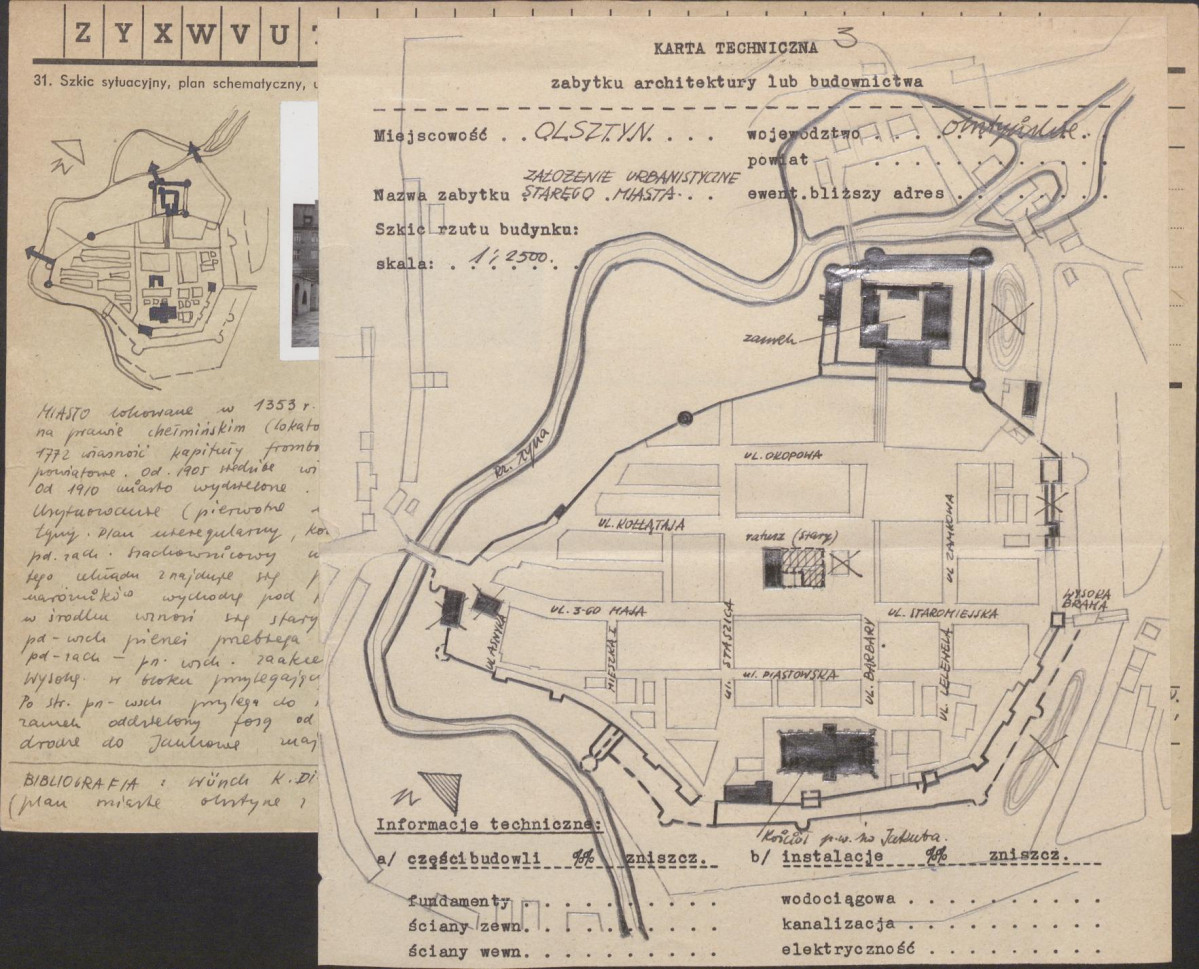 Z Y X W V U
31. Szkic sytuacyjny, plan schematyczny,
N
MIASTO lokowane w 1353 r.
na prawie chełmińskim (lokato
1772 własność kapituły frombo
powiatowe. Od. 1905 siedziba wi
Od 1910 miasto wydzielone.
Usytuowanie (pierwotne
Łyny. Plan nieregularny, ko
pd. zach. szachownicowy u
tego układu znajduje się
narożników wychodzą pod
w środku wznosi się stary
pd-wsch pierzei przebiega
pd-zach - pn. wsch.
Wysoką. w bloku przylegają
Po str. pn-wsch przylega do
zamek oddzielony fosą od
drodze do Jankowa
BIBLIOGRAFIA : Wünch K. Di
(plan miasta olsztyna
KARTA TECHNICZNA 3
zabytku architektury lub budownictwa
Miejscowość . . OLSZTYN. . . . województwo . . . . olsztyńskie.
powiat . . . . . . . . . . .
Nazwa zabytku ZAŁOŻENIE URBANISTYCZNE
STAREGO MIASTA. . . ewent.bliższy adres . . . . . . .
Szkic rzutu budynku:
skala: . 1:2500. . .
zamek
rz. Łyna
UL. OKOPOWA
UL. KOŁŁĄTAJA
ratusz (stary)
UL ZAMKOWA
WYSOKA
BRAMA
UL. 3-GO MAJA
UL. STAROMIEJSKA
UL. ASNYKA
MIESZKA I
UL. STASZICA
UL. BARBARY
UL. LELEWELA
UL. PIASTOWSKA
N
Kościół p.w. św Jakuba.
Informacje techniczne:
a/ części budowli %% zniszcz. b/ instalacje %% zniszcz.
fundamenty . . . . . . . . . . wodociągowa . . . . . . . . .
ściany zewn. . . . . . . . . . kanalizacja . . . . . . . . .
ściany wewn. . . . . . . . . . elektryczność . . . . . . . .